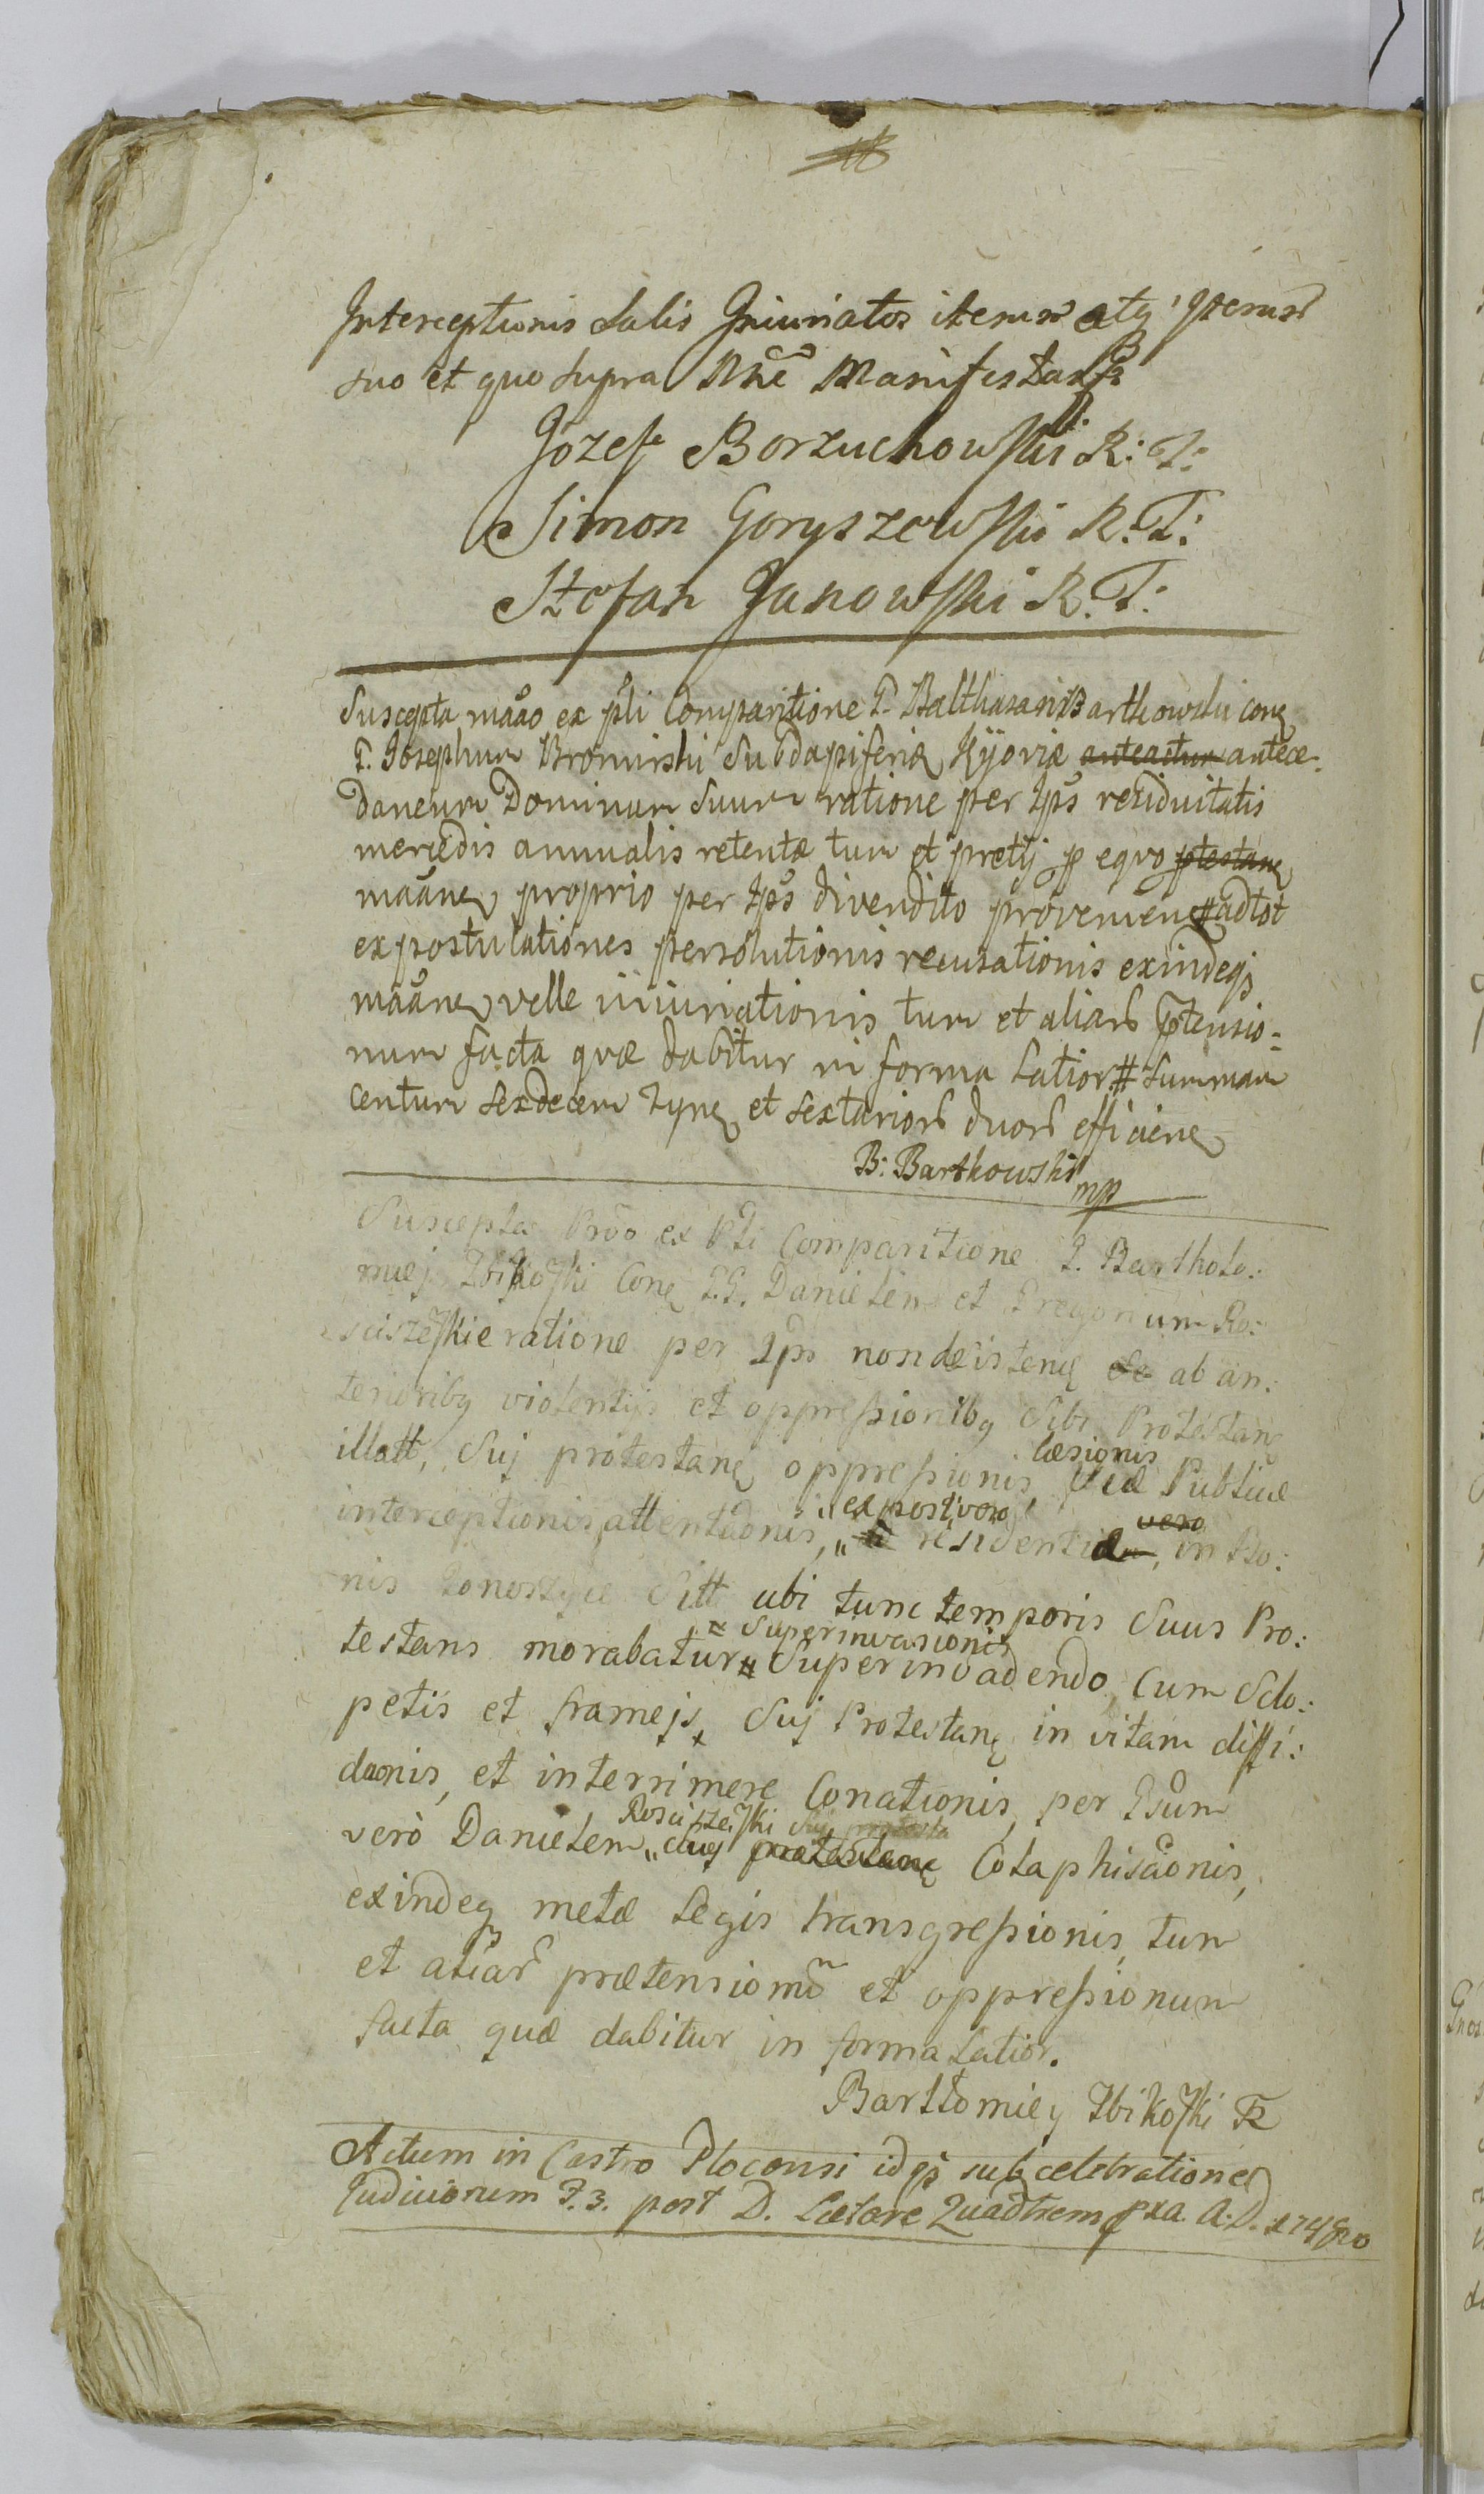 Interceptionis Salis Iniuriatos iterum atq' Iterum
suo et quo supra Nne Manifestantr
Jozef Borzuchowski R: T:
Simon Goryszewski R. T:
Stefan Janowski R. T:
Suscepta maão ex pli Comparitione G. Balthasari Bartkowski con
G. Josephum Bromirski Subdapiferid Kijoviæ anteactum antece-
daneum Dominum Suum ratione per Ips residuitatis
mercedis annualis retentæ tum et pretij p equo ptestan
maãn proprio per Ips divendito provenien # adtot
expostulationes persolutionis recusationis exindeq
maãn velle iniuriationis tum et aliar ptensio-
num facta quæ dabitur in forma Latiori # Summam
centum sexdecem Tyn et sextarior duor efficien
B: Bartkowski mp
Suscepta Prõo ex Pli Comparitione G. Bartholo:
mej Zbikoski Con G.G. Danielem et Gregorium Ro:
sciszeskie ratione per Ips non desisten de ab an:
terioribq violentijs et oppressionibq Sibi Protestan
illatt, Suj protestan oppressionis læsionis, Viæ Publicæ
interceptionis, attentaonis, " ex post vero residentiæ vero, in Bo:
nis Sitt ubi tunc temporis Suus Pro:
testans morabatur # Superinvasionis Superinvadendo, Cum Sclo:
petis et framejs, Suj Protestan in vitam diffi:
daonis, et interrimere Conationis, per Gsum
verò Danielem " Rosciszeski Suj protesta cuiq protestan Colaphisaonis,
exindeq metæ Legis transgressionis, tum
et aliar prætensiomo et oppressionum
facta quæ dabitur in forma Latior.
Barttomiey Zbikoski
Actum in Castro Ploconsi idq sub celebratione
Judiciorum F. 3. post D. Lætare Quadtrem pxa. A. D. 1748vo